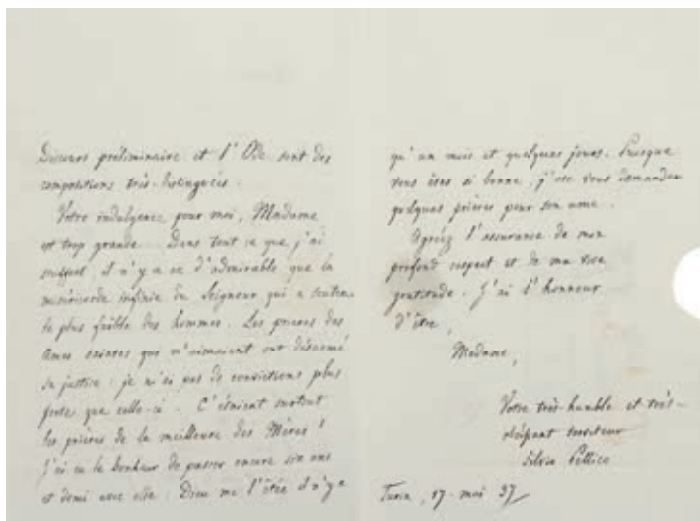 Discours préliminaire et l'Ode sont des
compositions très-distinguées.
Votre indulgence pour moi, Madame
est trop grande. Dans tout ce que j'ai
souffert, il n'y a de d'admirable que la
miséricorde infinie du Seigneur qui a soutenu
le plus faible des hommes. Les prières des
âmes saintes que m'aimaient ont désarmé
sa justice : je n'ai pas de convictions plus
forte que celle-ci. C'étaient surtout
les prières de la meilleure des Mères !
J'ai eu le bonheur de passer encore six ans
et demi avec elle : Dieu me l'ôtée il n'y a
qu'un mois et quelques jours. Puisque
vous êtes si bonne, j'ose vous demander
quelques prières pour son ame.
Agréez l'assurance de mon
profond respect et de ma vive
gratitude. J'ai l'honneur
d'être,
Madame,
Votre très-humble et très-
obéissant serviteur
Silvio Pellico
Turin, 17 mai 37